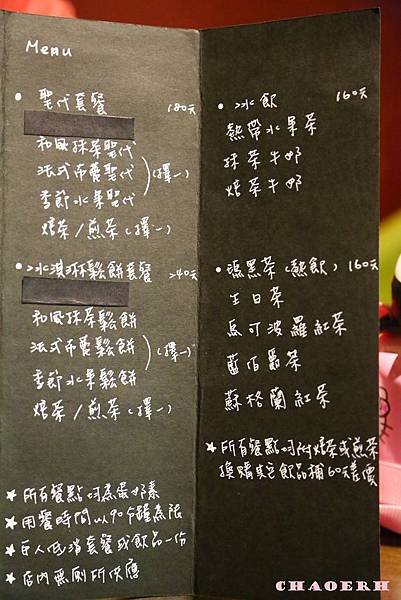 Menu
• 聖代套餐 180元
和風抹茶聖代
法式布蕾聖代 (擇一)
季節水果聖代
焙茶/煎茶(擇一)
• 冰淇淋鬆餅套餐 240元
和風抹茶鬆餅
法式布蕾鬆餅 (擇一)
季節水果鬆餅
焙茶/煎茶(擇一)
★ 所有餐點均為蛋奶素
★ 用餐時間以90分鐘為限
★ 每人低消套餐或飲品一份
★ 店內無廁所供應
• 冰飲 160元
熱帶水果茶
抹茶牛奶
焙茶牛奶
• 瑪黑茶(熱飲) 160元
生日茶
馬可波羅紅茶
藍伯爵茶
蘇格蘭紅茶
★ 所有餐點均附焙茶或煎茶
換購其它飲品補60元差價
CHAOERH